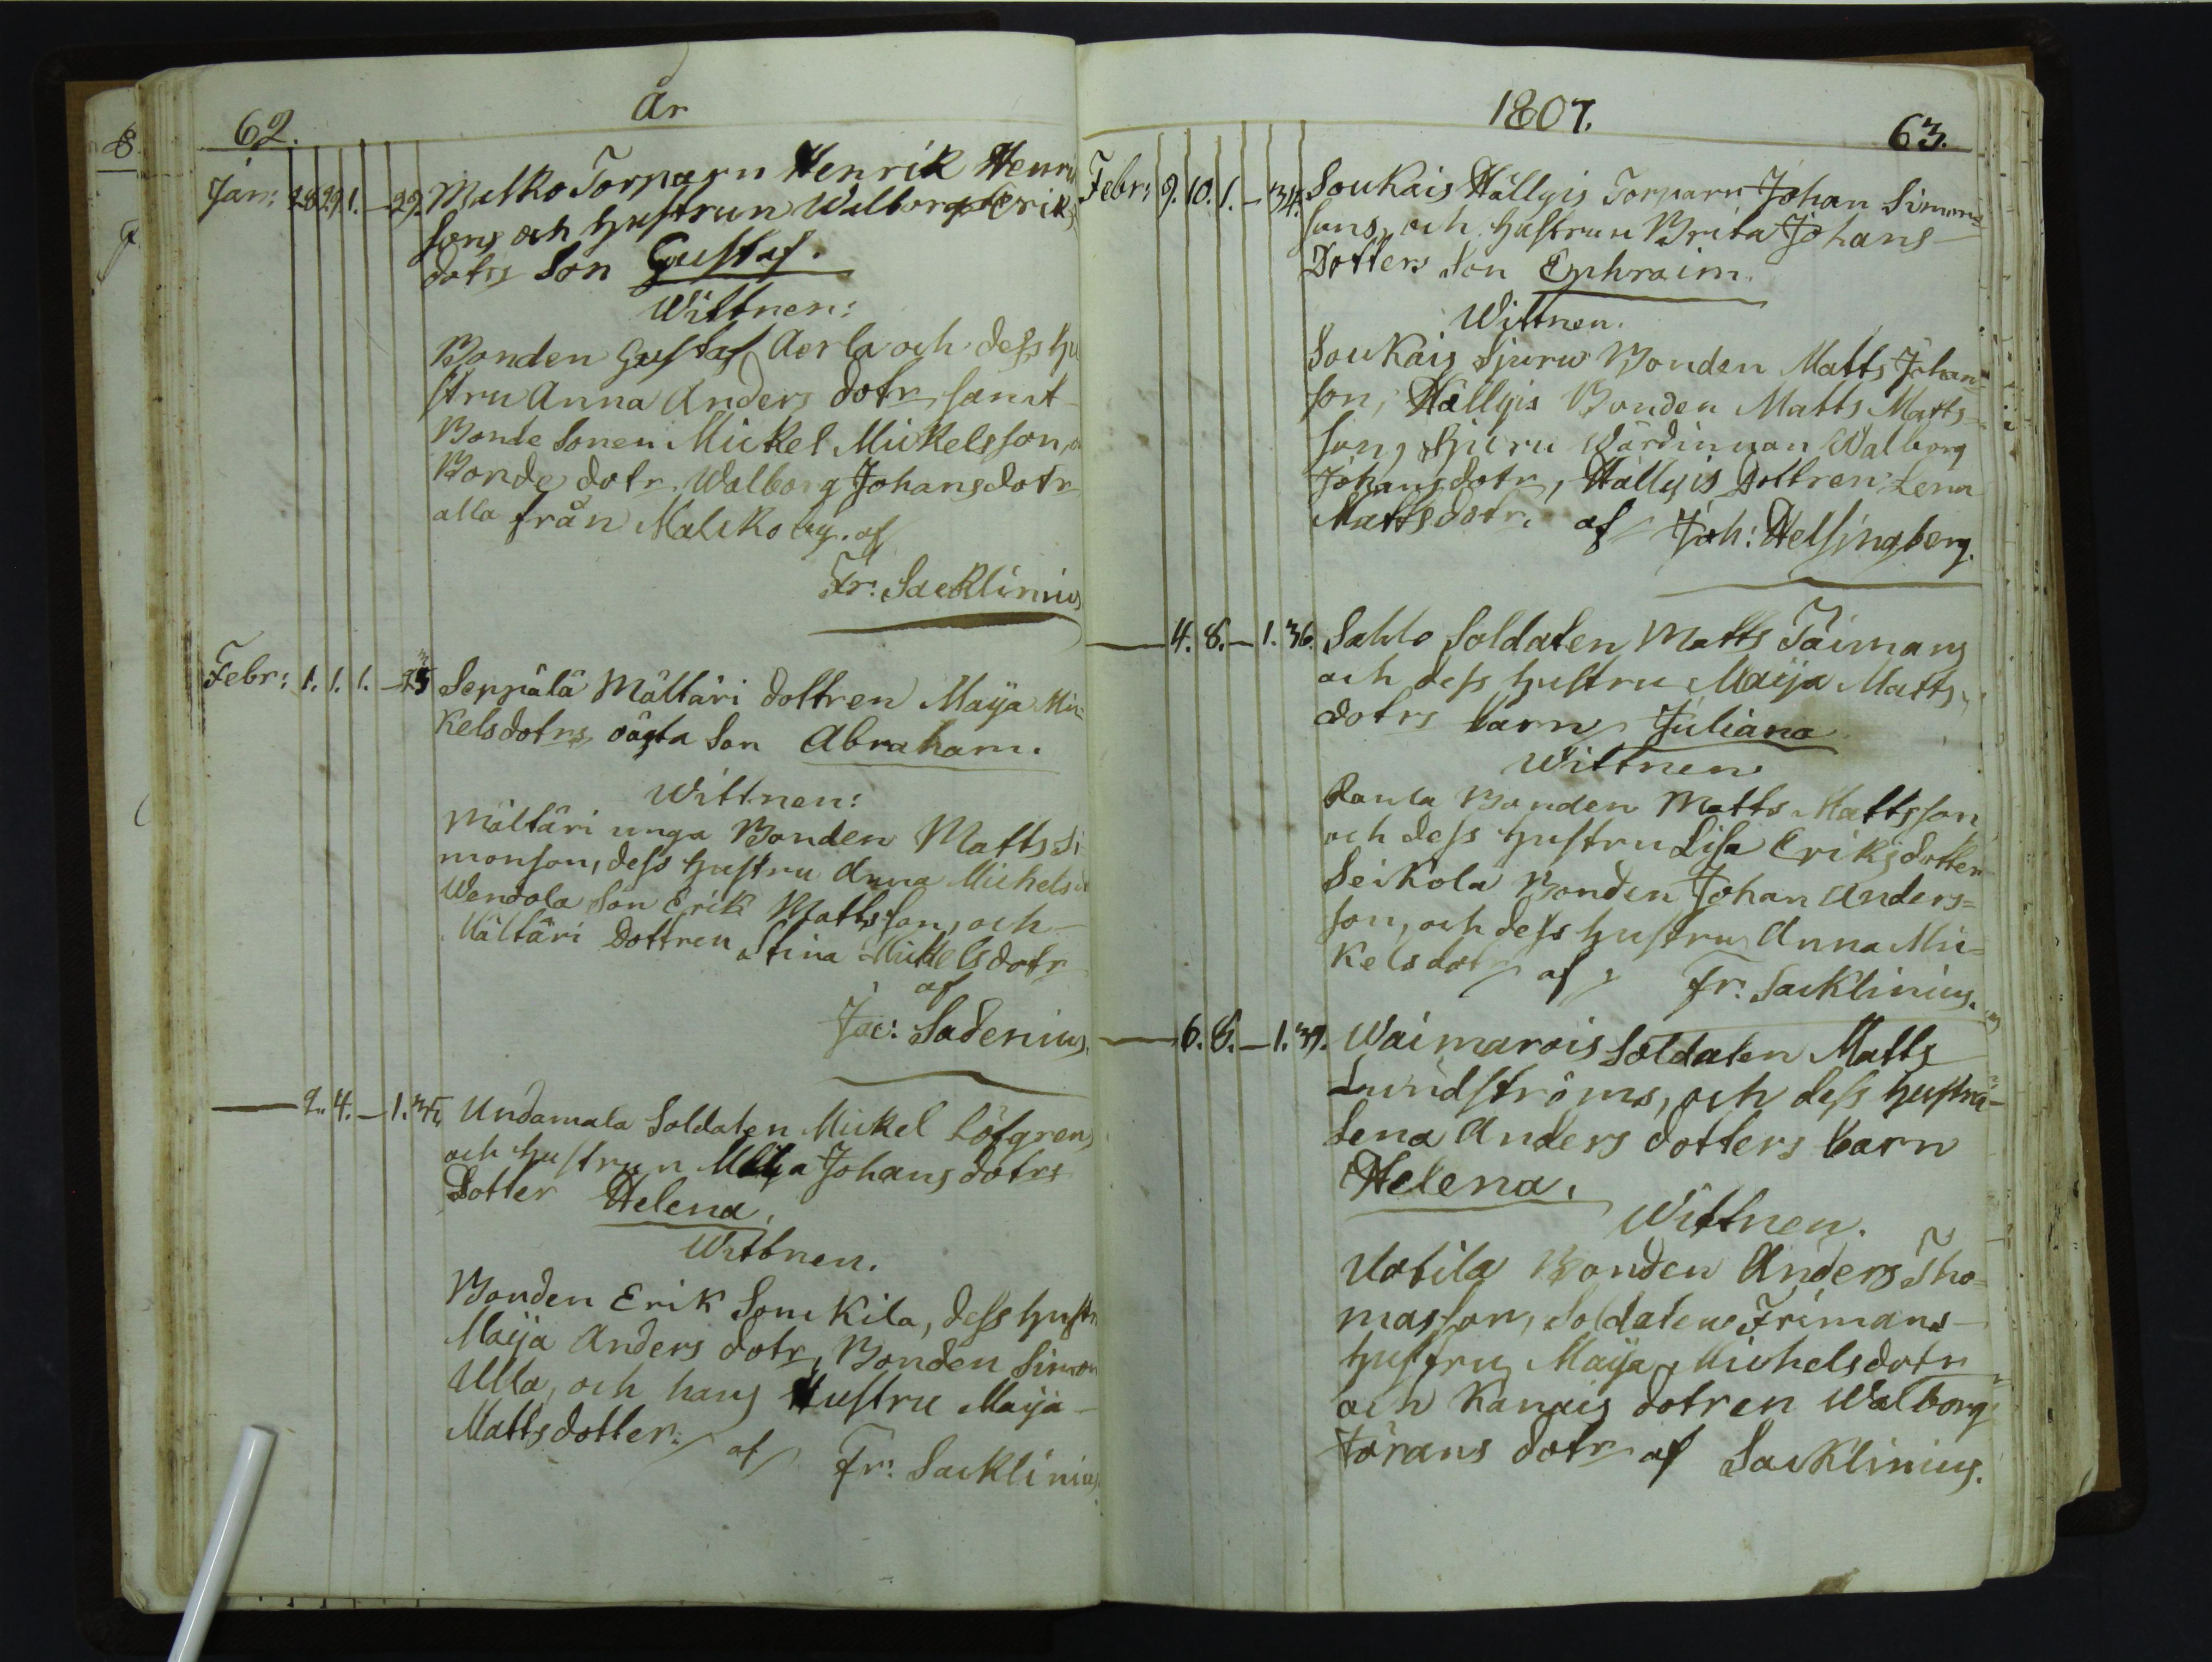 62.
År
Jan: 28. 29. 1. — 29. Malko Torparn Henrik Henri
sons och hustrun Walborg Eriks
dotrs Son Gustaf.
Wittnen:
Bonden Gustaf Aerla och dess hu
stru Anna Anders dotr, samt
Bonde Sonen Mickel Mickelsson,
Bonde dotr. Walborg Johansdotr
alla från Malko by. af
Fr: Sacklinius
Febr: 1. 1. 1. — Seppälä Mältäri dottren Maija Mic
kelsdotrs oägta Son Abraham.
Wittnen:
Mältäri unga Bonden Matts Si
monson, dess hustru Anna Michelsd
Wendola Son Erik Mattsson, och
Mältäri Dottren Stina Mickelsdotr
af
Jac: Sadenius.
— 2. 4. — 1. Undamala Soldaten Mickel Löfgrens
och hustrun Maja Johans dotrs
Dotter Helena.
Wittnen.
Bonden Erik Somkila, dess hustr
Maija Anders dotr, Bonden Simon
Ulla, och hans Hustru Maija
Mattsdotter. af Fr: Sacklinius.
1807.
63.
Febr: 9. 10. 1. — 34. Soukais Hällyis Torparn Johan Simons
sons, och hustrun Brita Johans
Dotters Son Ephraim.
Wittnen.
Soukais Sjuru Bonden Matts Johan
son, Hällyis Bonden Matts Matts
son, Sjuru Wärdinnan Walborg
Johansdotr, Hällyis Dottren Lena
Mattsdotr. af Joh: Helsingberg.
— 4. 8. — 1. 36. Sahlo Soldaten Matts Taimans
och dess hustru Maija Matts
dotrs barn Juliana
Wittnen
Ranla Bonden Matts Mattsson
och dess hustru Lisa Eriksdotter
Seikola Bonden Johan Anders=
son, och dess hustru Anna Mic=
kelsdotr af Fr. Sacklinius.
— 6. 8. — 1. 37. Waimarois Soldaten Matts
Lundströms, och dess hustru
Lena Anders dotters barn
Helena.
Wittnen.
Uotila Bonden Anders Tho=
masson, Soldaten Frimans
hustru Maija Michelsdotr
och Kanais dotren Walborg
Jörans dotr af Sacklinius.